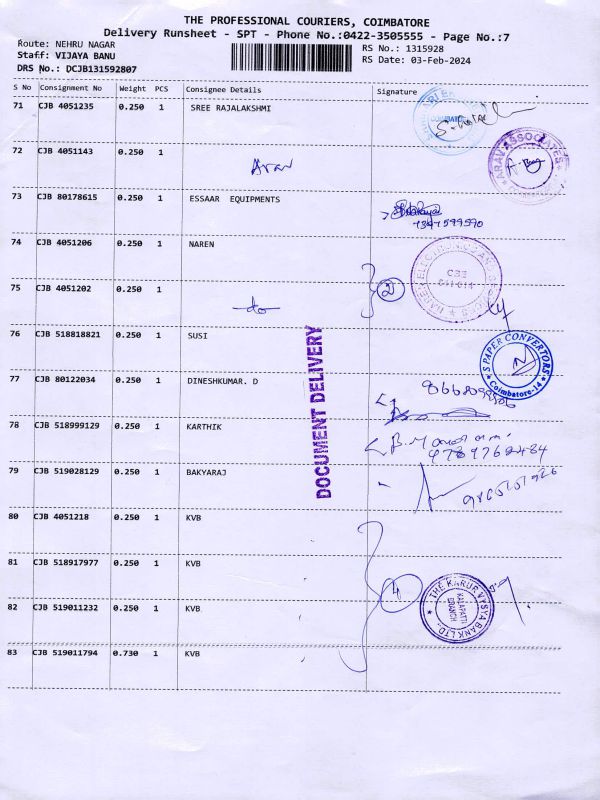 THE PROFESSIONAL COURIERS, COIMBATORE
Delivery Runsheet - SPT - Phone No.:0422-3505555 - Page No.:7
Route: NEHRU NAGAR
RS No.: 1315928
Staff: VIJAYA BANU
RS Date: 03-Feb-2024
DRS No.: DCJB131592807
S No Consignment No Weight PCS Consignee Details Signature
71 CJB 4051235 0.250 1 SREE RAJALAKSHMI
72 CJB 4051143 0.250 1 Arav
ARAV ASSOCIATES
73 CJB 80178615 0.250 1 ESSAAR EQUIPMENTS
74 CJB 4051206 0.250 1 NAREN
75 CJB 4051202 0.250 1 -do-
2
76 CJB 518818821 0.250 1 SUSI
S PAPER CONVERTORS
Coimbatore-14
77 CJB 80122034 0.250 1 DINESHKUMAR. D
DOCUMENT DELIVERY
78 CJB 518999129 0.250 1 KARTHIK
79 CJB 519028129 0.250 1 BAKYARAJ
80 CJB 4051218 0.250 1 KVB
81 CJB 518917977 0.250 1 KVB
4
THE KARUR VYSYA BANK LTD.
KALAPATTI
BRANCH
82 CJB 519011232 0.250 1 KVB
83 CJB 519011794 0.730 1 KVB